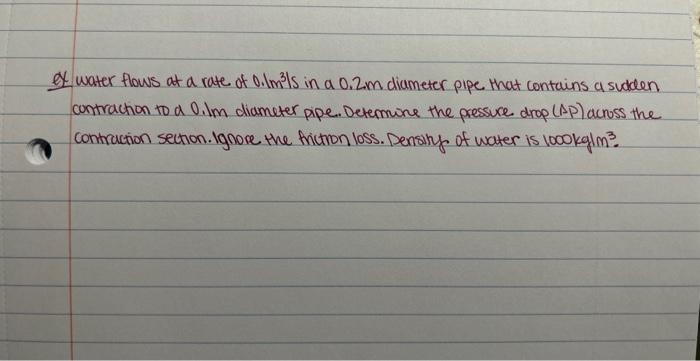 ex water flows at a rate of 0.1m³/s in a 0.2m diameter pipe that contains a sudden
contraction to a 0.1m diameter pipe. Determine the pressure drop (ΔP) across the
contraction section. Ignore the friction loss. Density of water is 1000kg/m³.